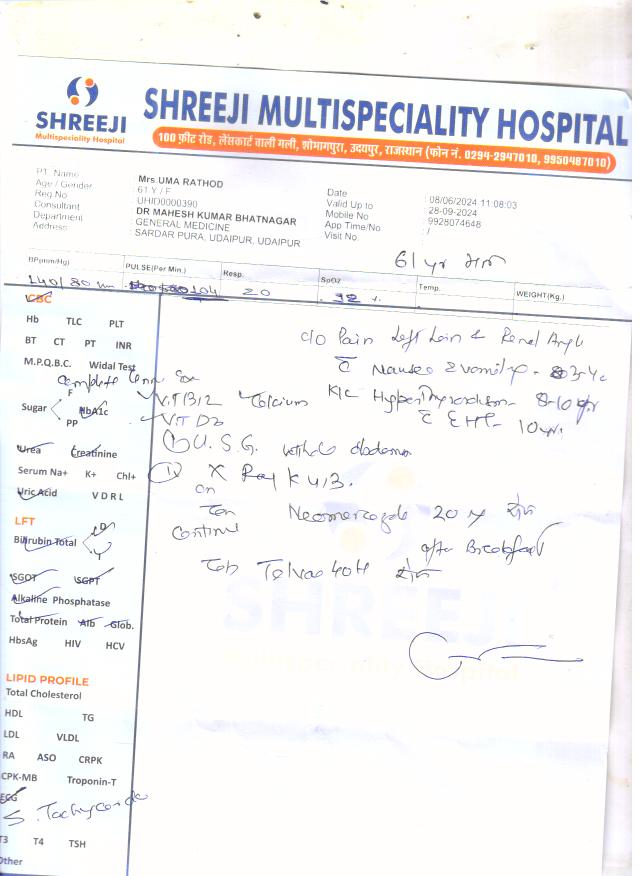 SHREEJI
Multispeciality Hospital
SHREEJI MULTISPECIALITY HOSPITAL
100 फ़ीट रोड, लेंसकार्ट वाली गली, शोभागपुरा, उदयपुर, राजस्थान (फोन नं. 0294-2947010, 9950487010)
PT. Name Mrs.UMA RATHOD
Age / Gender 61 Y / F
Reg.No UHID0000390
Consultant DR MAHESH KUMAR BHATNAGAR
Department : GENERAL MEDICINE
Address : SARDAR PURA, UDAIPUR, UDAIPUR
Date : 08/06/2024 11:08:03
Valid Up to : 28-09-2024
Mobile No : 9928074648
App Time/No : /
Visit No. :
61 yr
BP(mm/Hg) PULSE(Per Min.) Resp. SpO2 Temp. WEIGHT(Kg.)
140/80 104 20 92 %
CBC
Hb TLC PLT
BT CT PT INR
M.P.Q.B.C. Widal Test
Complete
Sugar F HbA1c
PP
Urea Creatinine
Serum Na+ K+ Chl+
Uric Acid V D R L
LFT
Bilirubin Total
SGOT SGPT
Alkaline Phosphatase
Total Protein Alb Glob.
HbsAg HIV HCV
LIPID PROFILE
Total Cholesterol
HDL TG
LDL VLDL
RA ASO CRPK
CPK-MB Troponin-T
ECG
S. Tachycardia
T3 T4 TSH
Other
c/o Pain Left Loin & Renal Angle
c Nausea & vomiting
V.T B12 Calcium K/c Hyperthyroidism 8-10 yr
VIT D3 c EHT 10 yr.
U.S.G. whole abdomen
X Ray K U B.
on
Tab Neomercazole 20
Continue after Breakfast
Tab Telvas 40H
SHREEJI
Multispeciality Hospital